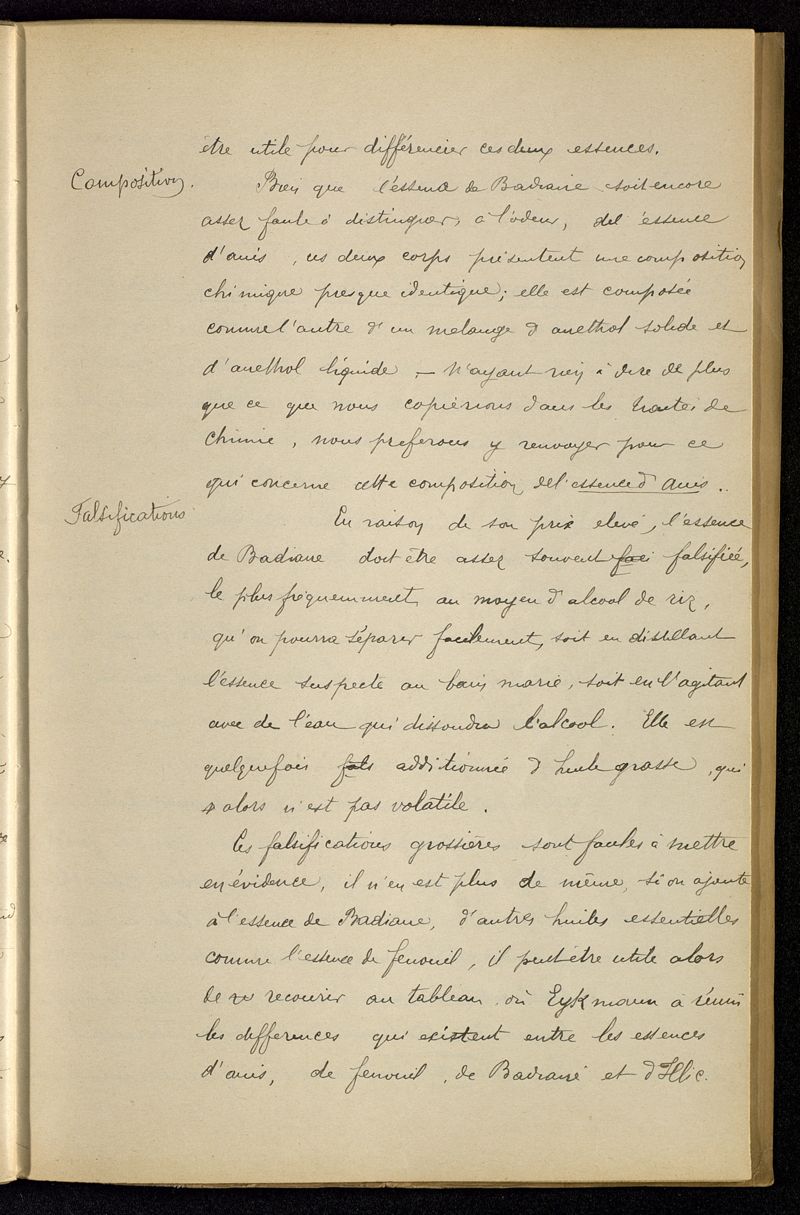 être utile pour différencier ces deux essences.
Composition.
Bien que l'essence de Badiane soit encore
assez facile à distinguer, à l'odeur, de l'essence
d'anis, ces deux corps présentent une composition
chimique presque identique; elle est composée
comme l'autre d'un mélange d'anethol solide et
d'anethol liquide. — N'ayant rien à dire de plus
que ce que nous copierions dans les traités de
chimie, nous préferons y renvoyer pour ce
qui concerne cette composition de l'essence d'anis.
Falsifications
En raison de son prix elevé, l'essence
de Badiane doit être assez souvent falsifiée,
le plus fréquemment au moyen d'alcool de riz,
qu'on pourra séparer facilement, soit en distillant
l'essence suspecte au bain marie, soit en l'agitant
avec de l'eau qui dissoudra l'alcool. Elle est
quelquefois fals additionnée d'huile grasse, qui
alors n'est pas volatile.
Ces falsifications grossières sont faciles à mettre
en évidence, il n'en est plus de même, si on ajoute
à l'essence de Badiane, d'autres huiles essentielles
comme l'essence de fenouil, il peut être utile alors
de recourir au tableau où Eykmann a réuni
les differences qui existent entre les essences
d'anis, de fenouil, de Badiane et d'Illic.